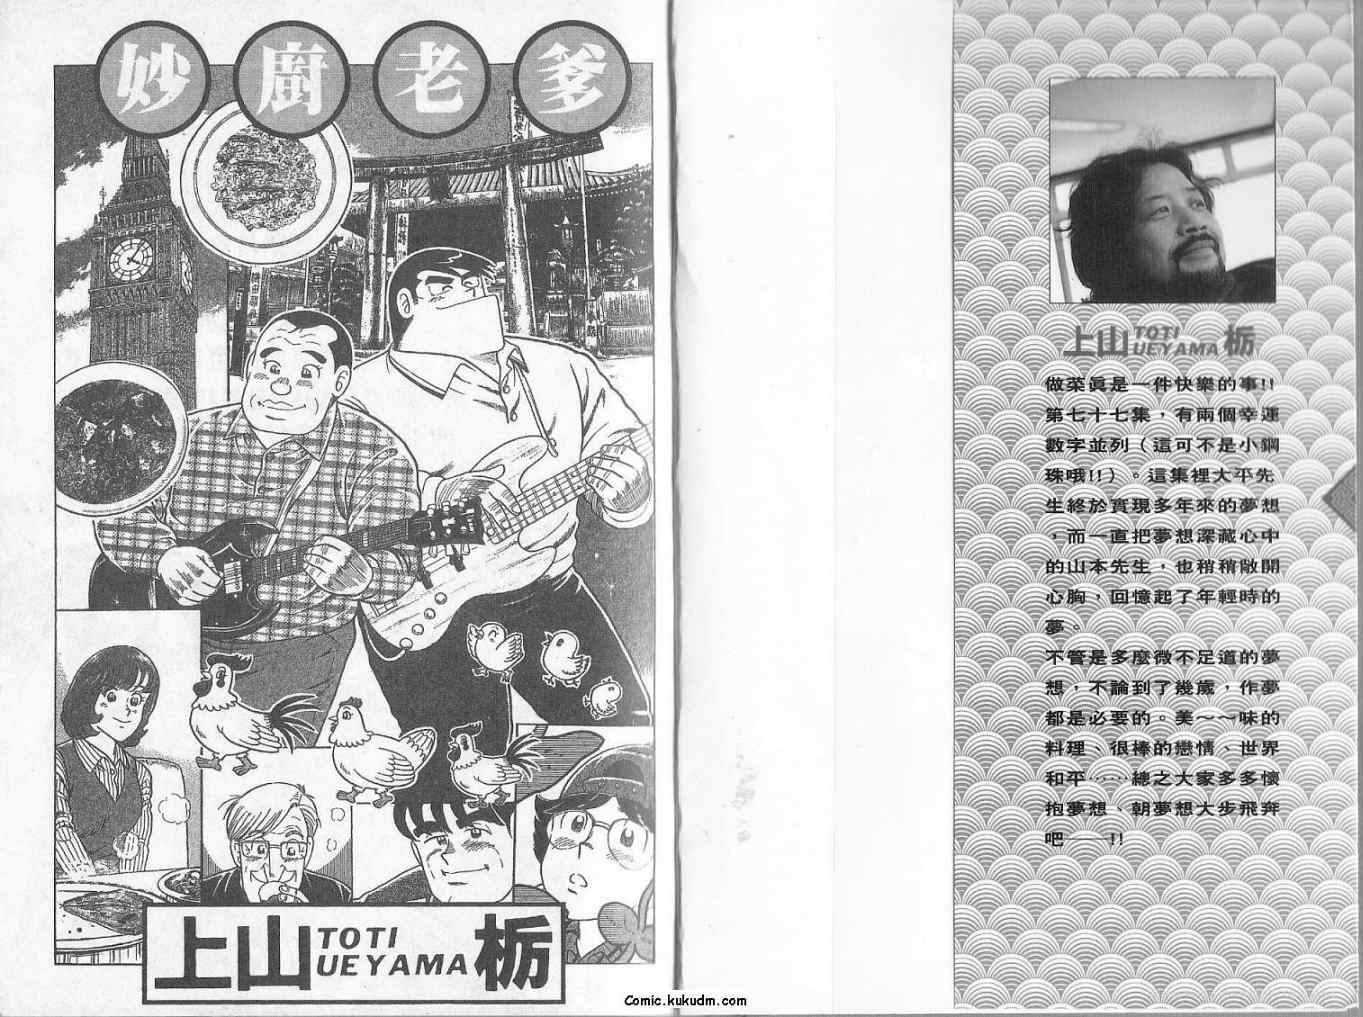 妙廚老爹
上山 TOTI UEYAMA 栃
上山 TOTI UEYAMA 栃
做菜眞是一件快樂的事!!
第七十七集，有兩個幸運
數字並列（這可不是小鋼
珠哦!!）。這集裡大平先
生終於實現多年來的夢想
，而一直把夢想深藏心中
的山本先生，也稍稍敞開
心胸，回憶起了年輕時的
夢。
不管是多麼微不足道的夢
想，不論到了幾歲，作夢
都是必要的。美～～味的
料理、很棒的戀情、世界
和平……總之大家多多懷
抱夢想、朝夢想大步飛奔
吧──!!
Comic.kukudm.com